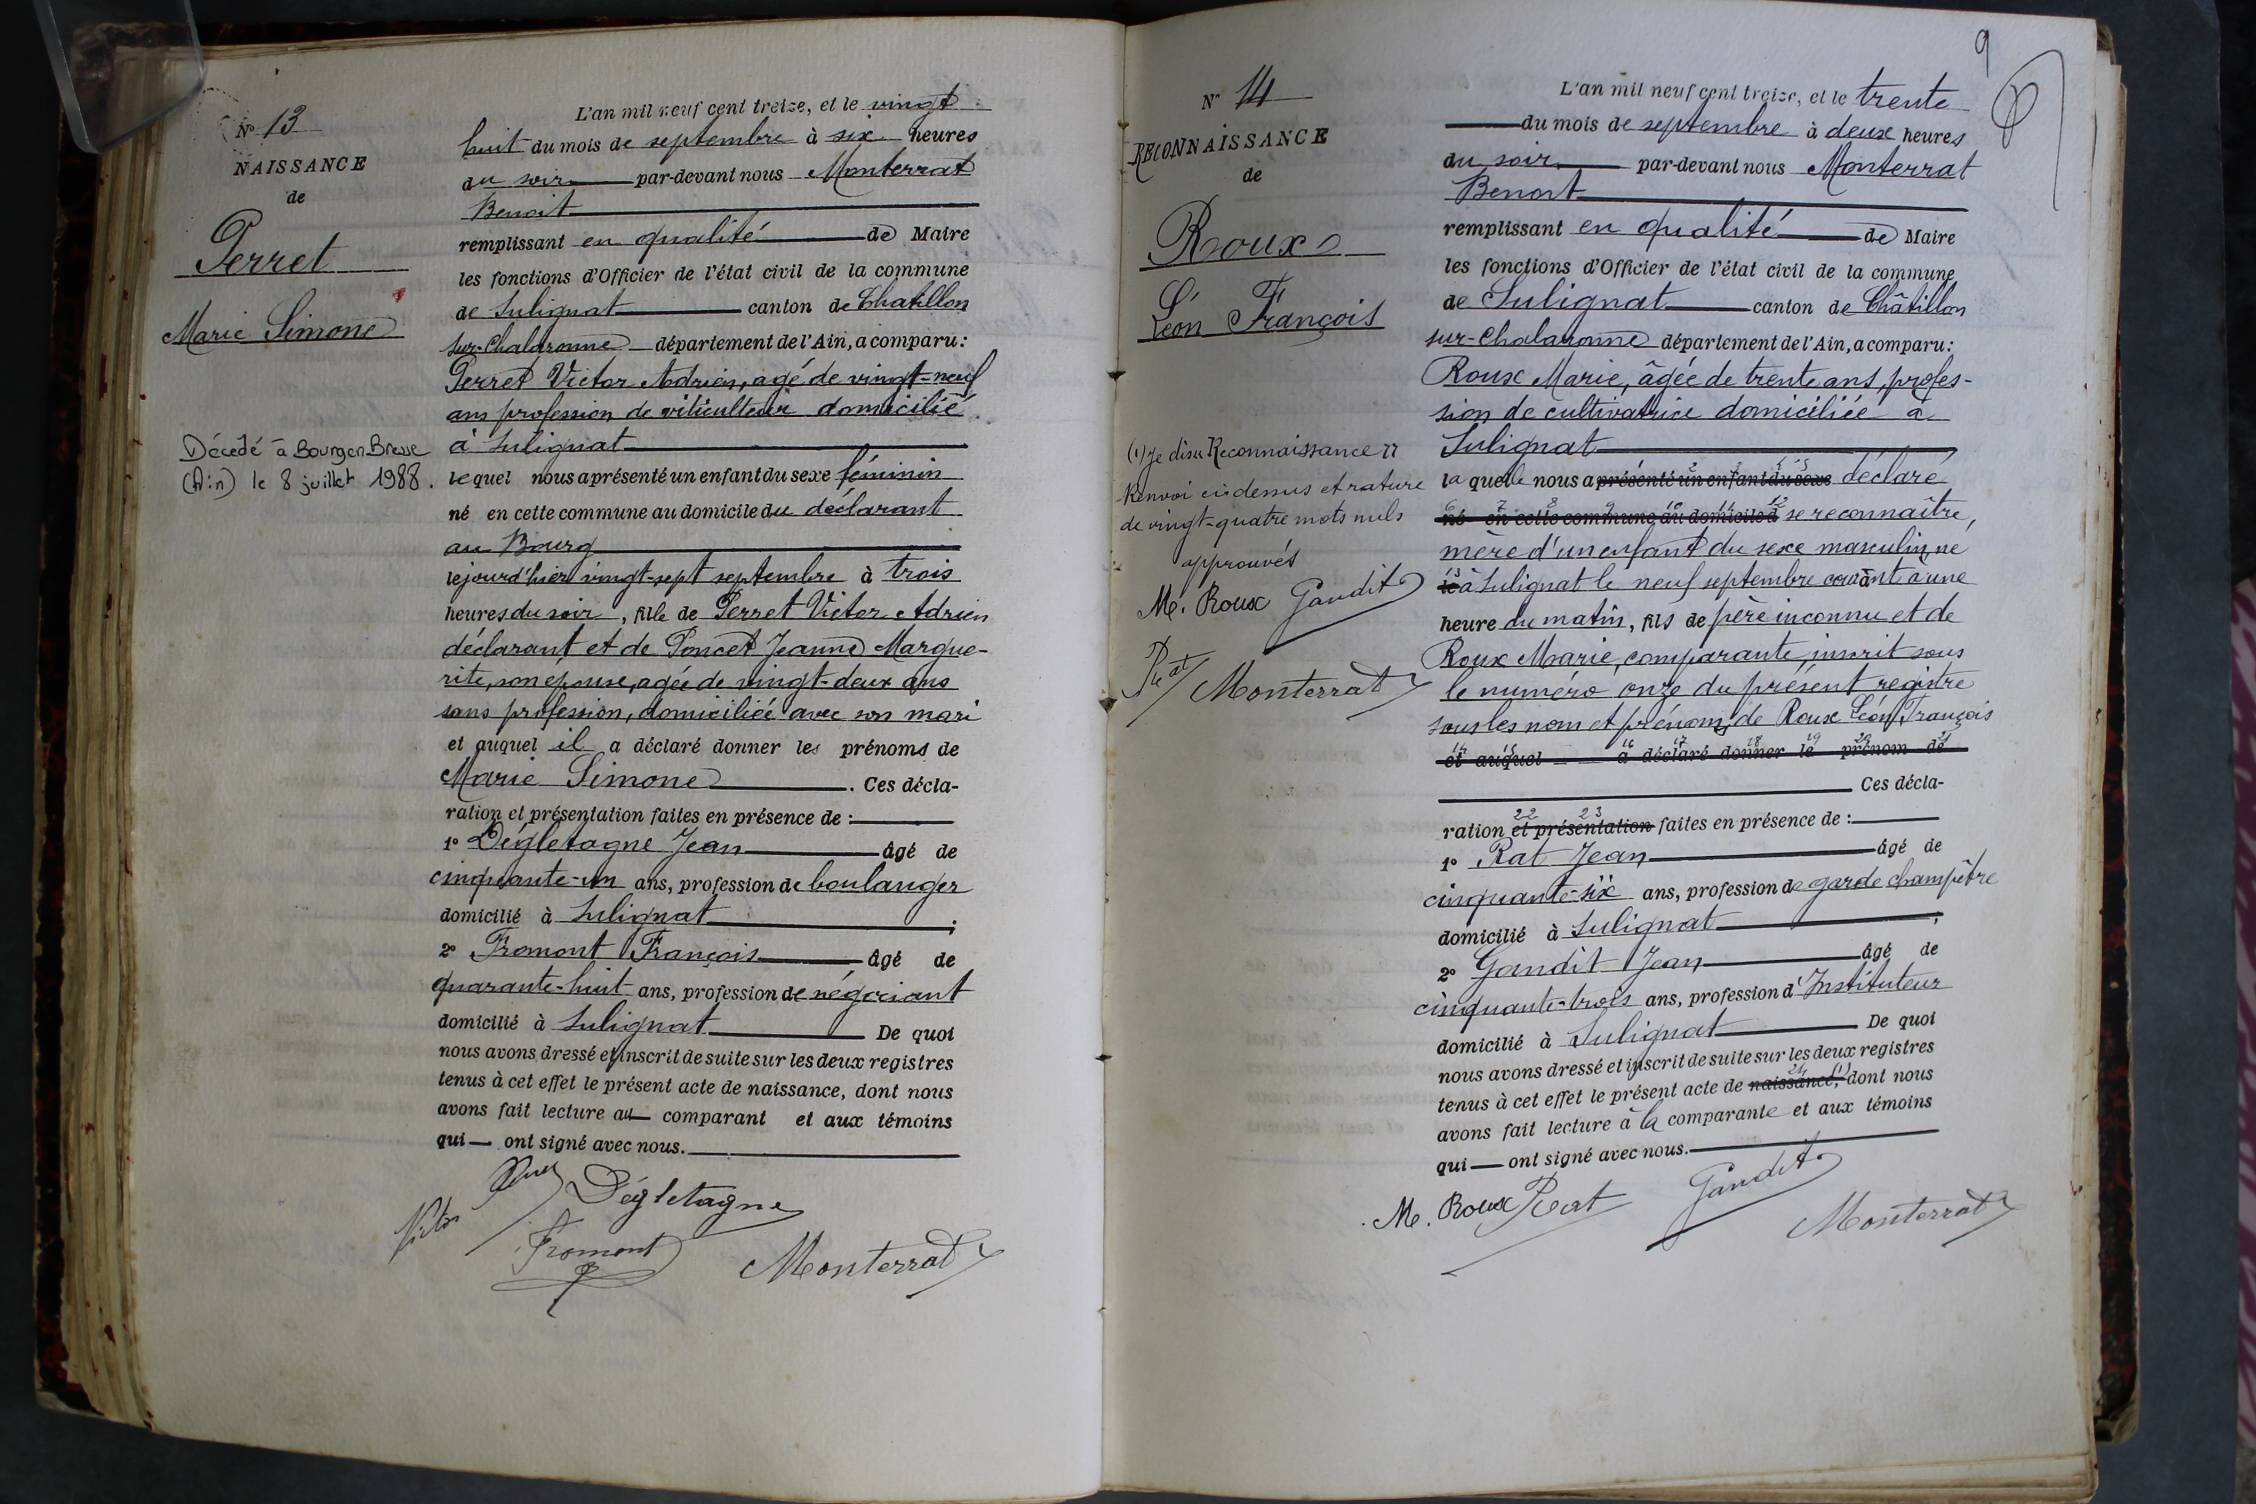 N° 13
NAISSANCE
de
Perret
Marie Simone
Décédé à Bourg en Bresse
(Ain) le 8 juillet 1988.
L'an mil neuf cent treize, et le vingt
huit du mois de septembre à six heures
du soir par-devant nous Monterrat
Benoit
remplissant en qualité de Maire
les fonctions d'Officier de l'état civil de la commune
de Sulignat canton de Chatillon
sur-Chalaronne département de l'Ain, a comparu:
Perret Victor Adrien, agé de vingt-neuf
ans profession de viticulteur domicilié
à Sulignat
lequel nous a présenté un enfant du sexe féminin
né en cette commune au domicile du déclarant
au Bourg
le jour d'hier vingt-sept septembre à trois
heures du soir, fille de Perret Victor Adrien
déclarant et de Poncet Jeanne Margue-
rite, son épouse, agée de vingt-deux ans
sans profession, domiciliée avec son mari
et auquel il a déclaré donner les prénoms de
Marie Simone. Ces décla-
ration et présentation faites en présence de :
1° Dégletagne Jean âgé de
cinquante-un ans, profession de boulanger
domicilié à Sulignat ;
2° Fromont François âgé de
quarante-huit ans, profession de négociant
domicilié à Sulignat De quoi
nous avons dressé et inscrit de suite sur les deux registres
tenus à cet effet le présent acte de naissance, dont nous
avons fait lecture au comparant et aux témoins
qui ont signé avec nous.
Victor Perret Dégletagne
Fromont Monterrat
9
N° 14
RECONNAISSANCE
de
Roux
Léon François
(1) Je dis " Reconnaissance "
Renvoi ci-dessus et rature
de vingt-quatre mots nuls
approuvés
M. Roux Gandit
Rat Monterrat
L'an mil neuf cent treize, et le trente
du mois de septembre à deux heures
du soir par-devant nous Monterrat
Benoit
remplissant en qualité de Maire
les fonctions d'Officier de l'état civil de la commune
de Sulignat canton de Châtillon
sur-Chalaronne département de l'Ain, a comparu:
Roux Marie, âgée de trente ans, profes-
sion de cultivatrice domiciliée à
Sulignat
la quelle nous a présenté un enfant du sexe déclaré
né en cette commune au domicile d se reconnaître,
mère d'un enfant du sexe masculin, né
le à Sulignat le neuf septembre courant à une
heure du matin, fils de père inconnu et de
Roux Marie, comparante, inscrit sous
le numéro onze du présent registre
sous les nom et prénoms de Roux Léon François
et auquel a déclaré donner le prénom de
Ces décla-
ration et présentation faites en présence de :
1° Rat Jean âgé de
cinquante-six ans, profession de garde champêtre
domicilié à Sulignat ;
2° Gandit Jean âgé de
cinquante-trois ans, profession d'Instituteur
domicilié à Sulignat De quoi
nous avons dressé et inscrit de suite sur les deux registres
tenus à cet effet le présent acte de naissance, (1) dont nous
avons fait lecture à la comparante et aux témoins
qui ont signé avec nous.
M. Roux Rat Gandit
Monterrat